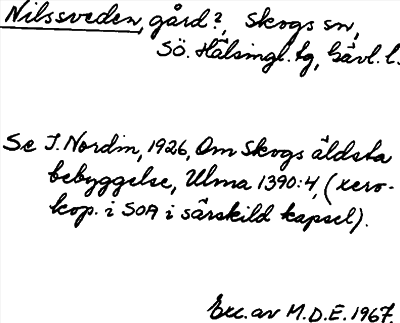 Nilssveden, gård?, Skogs sn,
Sö. Hälsingl. tg, Gävl. l.
Se J. Nordin, 1926, Om Skogs äldsta
bebyggelse, Ulma 1390:4, (xero-
kop. i SOA i särskild kapsel).
Exc. av M.D.E. 1967.